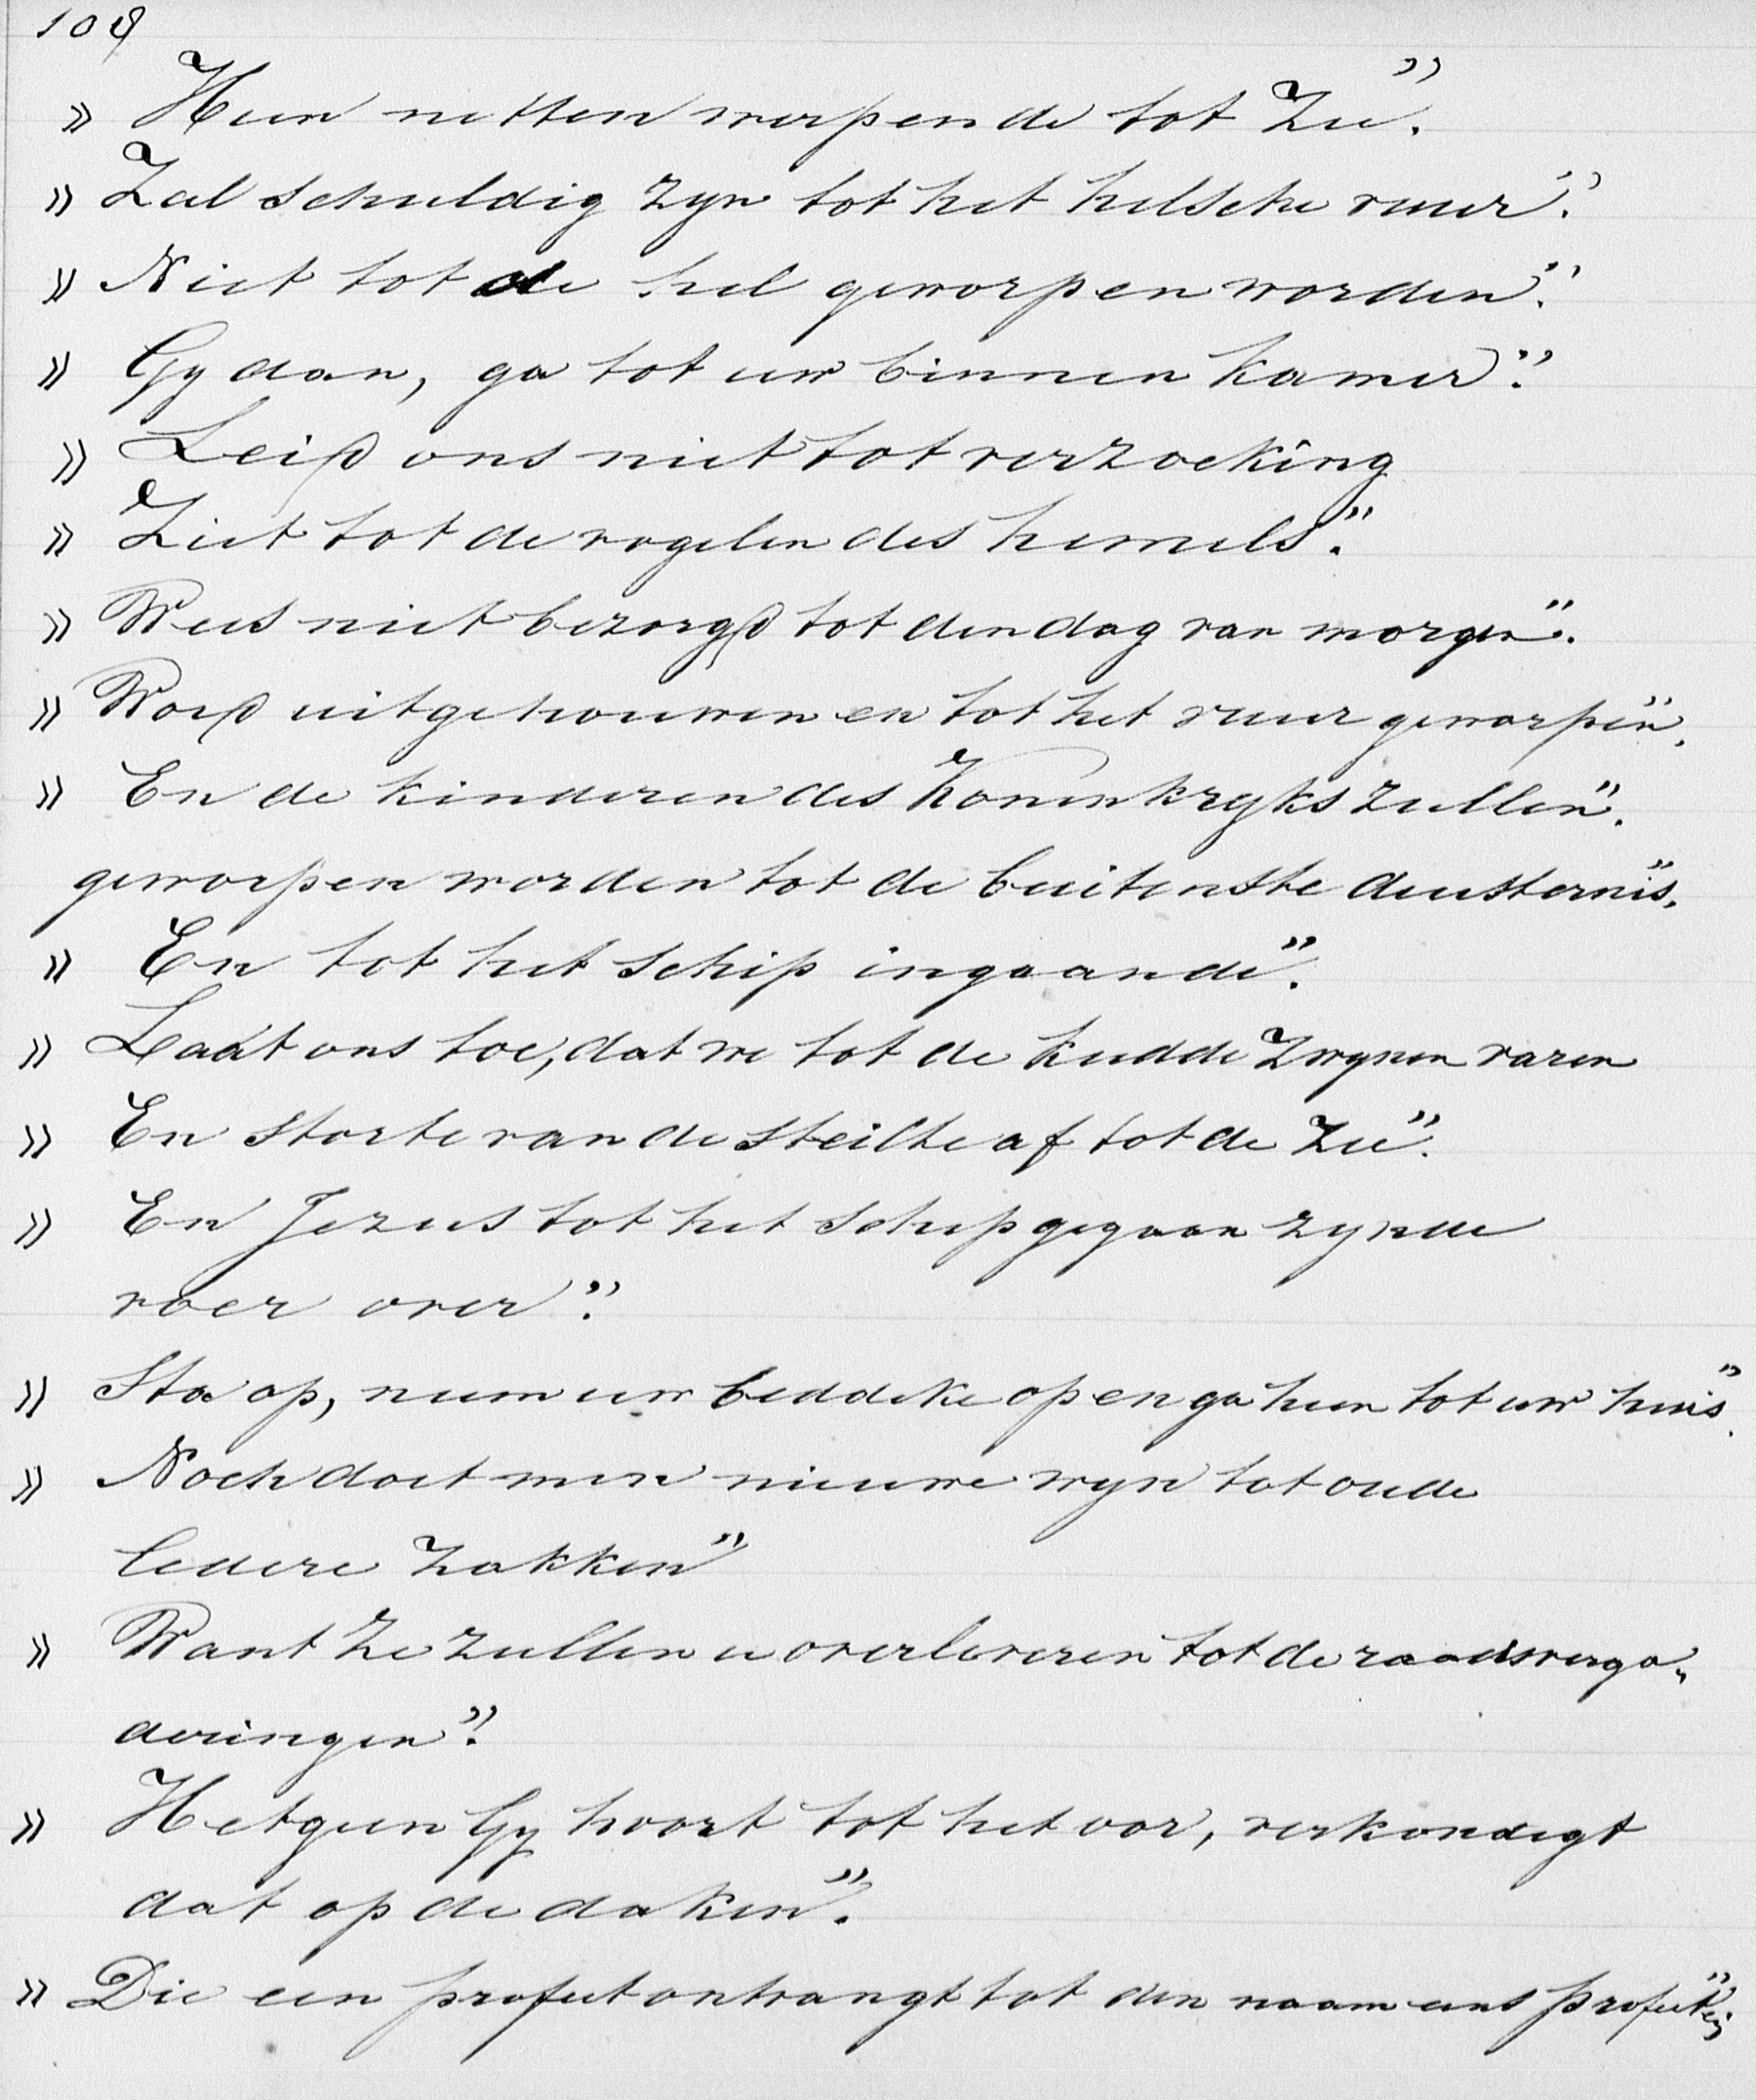 108
» Hun netten werpende tot Zee".
» Zal schuldig zyn tot het helsche vuur".
» Niet tot de hel geworpen worden".
» Gy dan, ga tot uw binnen kamer".
» Leid ons niet tot verzoeking
» Ziet tot de vogelen des hemels".
» Wees niet bezorgd tot den dag van morgen".
» Word uitgehouwen en tot het vuur geworpen".
» En de kinderen des Koninkryks zullen".
geworpen worden tot de buitenste duisternis".
» En tot het schip ingaande".
» Laat ons toe, dat we tot de kudde Zwynen varen
» En storte van de steilte af tot de Zee".
» En Jezus tot het schip gegaan zynde
voer over".
» Sta op, neem uw beddeke op en ga heen tot uw huis".
» Noch doet men nieuwe wyn tot oude
ledere Zakken"
» Want Ze Zullen u overleveren tot de raadsverga„
deringen".
» Hetgeen Gy hoort tot het oor, verkondigt
dat op de daken".
» Die een profeet ontvangt tot den naam eens profeten"